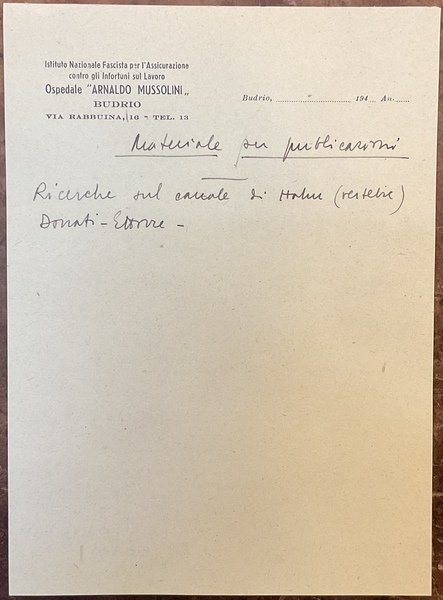 Istituto Nazionale Fascista per l'Assicurazione
contro gli Infortuni sul Lavoro
Ospedale "ARNALDO MUSSOLINI„
BUDRIO
VIA RABBUINA, 16 - TEL. 13
Budrio, 194 An.
Materiale per publicazioni
Ricerche sul canale di Hahn (vertebre)
Donati - Ettorre -